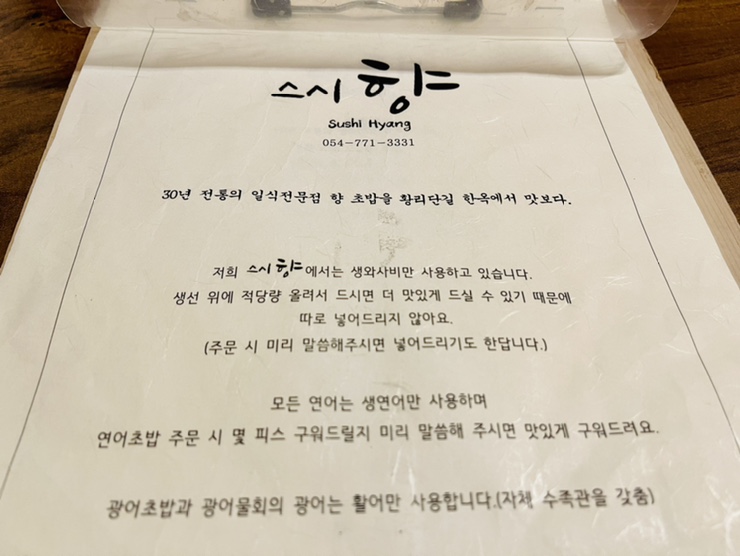 스시 향
Sushi Hyang
054-771-3331
30년 전통의 일식전문점 향 초밥을 황리단길 한옥에서 맛보다.
저희 스시 향에서는 생와사비만 사용하고 있습니다.
생선 위에 적당량 올려서 드시면 더 맛있게 드실 수 있기 때문에
따로 넣어드리지 않아요.
(주문 시 미리 말씀해주시면 넣어드리기도 한답니다.)
모든 연어는 생연어만 사용하며
연어초밥 주문 시 몇 피스 구워드릴지 미리 말씀해 주시면 맛있게 구워드려요.
광어초밥과 광어물회의 광어는 활어만 사용합니다.(자체 수족관을 갖춤)